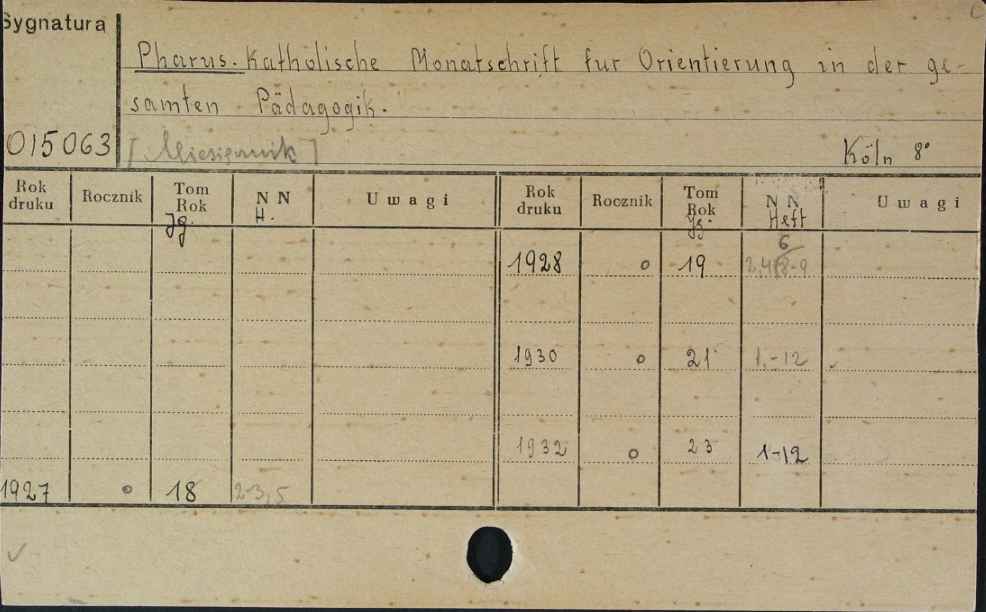 Sygnatura
Pharus. Katholische Monatschrift fur Orientierung in der ge-
samten Pädagogik.
015063 [Miesięcznik] Köln 8°
Rok druku Rocznik Tom Rok Jg. N N H. Uwagi Rok druku Rocznik Tom Rok Jg. N N Heft Uwagi
6
1928 o 19
1930 o 21 1.-12
1932 o 23 1-12
1927 o 18 2-3,5